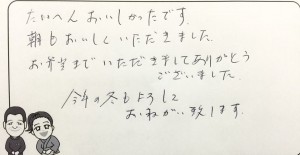 たいへんおいしかったです。
朝もおいしくいただきました。
お弁当までいただきましてありがとう
ございました。
今年の冬もよろしく
おねがい致します。